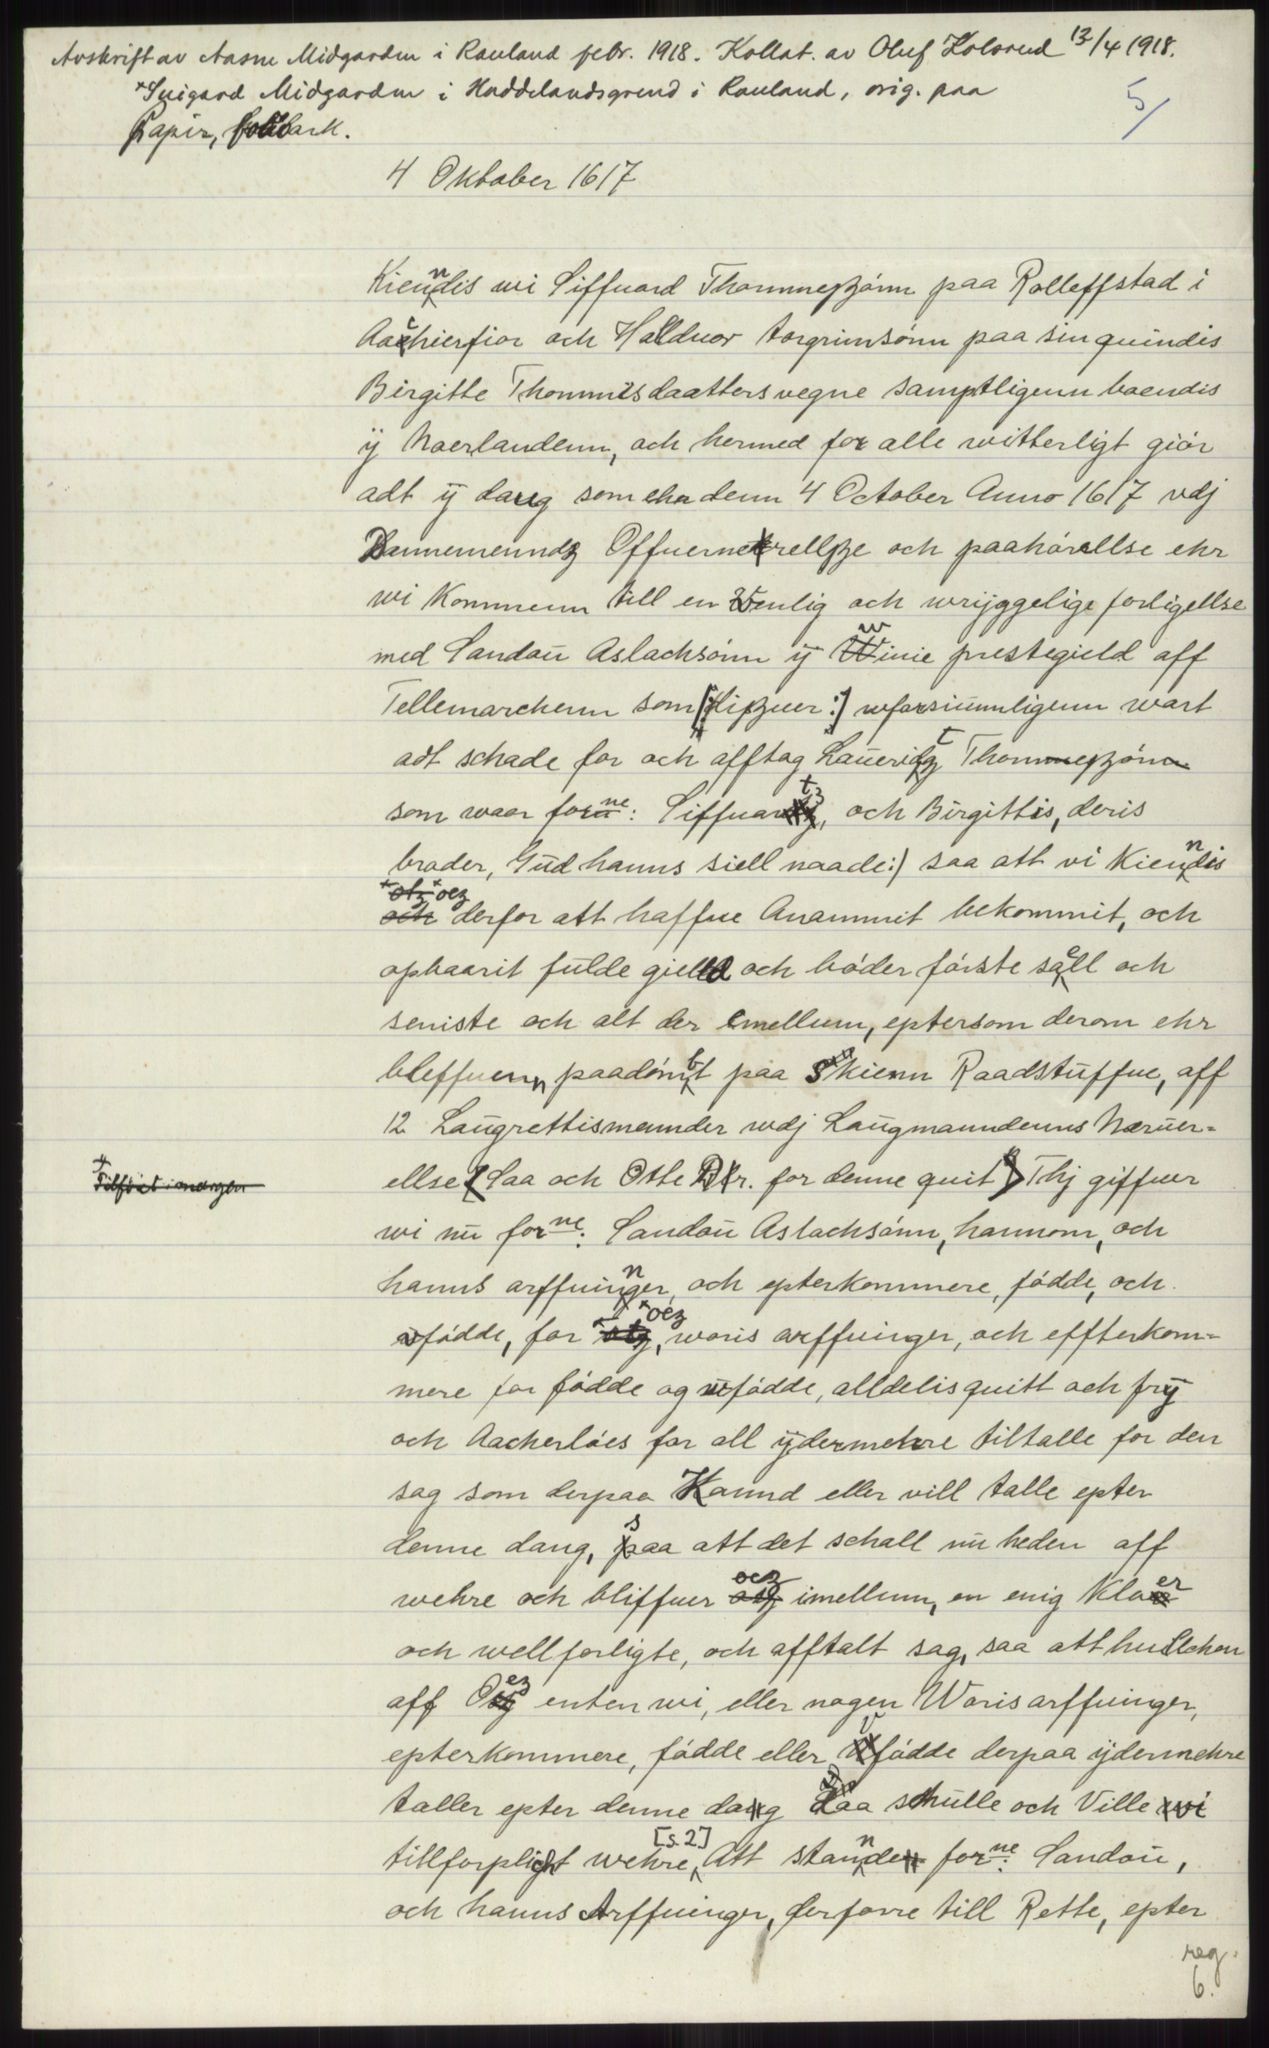 Avskrift av Aasne Midgarden i Rauland febr. 1918. Kollat. av Oluf Kolsrud 13/4 1918.
*Suigard Midgarden i Haddelandsgrend i Rauland, orig. paa
Papir, ark.
5/
4 Oktober 1617
Kienndis wi Siffuord Thommeszönn paa Rolleffstad i
hierfior och Halduor torgrimsönn paa sin quindis
Birgitte Thommisdaatters vegne samptligenn boendis
ÿ Noerlandenn, och hermed for alle witterligt giör
adt ÿ daug som ehr denn 4 October Anno 1617 vdj
Dannemenndz Offuernerellsze och paahörellse ehr
wi Kommenn till en Wenlig och wrÿggelige forligellse
med Sandou Aslachsönn ÿ Winie prestegield aff
Tellemarchenn som [:diszuer:] wforsiunnligenn wart
adt schade for och afftog Laueridtz Thommeszönn
som waar forne: Siffuartz, och Birgittis, deris
broder, Gud hanns siell naade:) saa att vi Kienndis
oez derfor att haffue Anammit bekommit, och
opbaarit fulde gield och böder förste sæll och
seniste och alt der emellum, eptersom derom ehr
bleffuenn paadömbt paa Skienn Raadstuffue, aff
12 Laugrettismennder wdj Laugmanndenns Næruer-
ellse Saa och Otte Dlr. for denne quit Thj giffuer
Tilföiet i margen
wi nu forne: Sandou Aslachsönn, hannom, och
hanns arffuinnger, och epterkommere, födde, och
vfödde, for oez, woris arffuinger, och effterkom-
mere for födde og ufödde, alldelis quitt och frÿ
och Aacherlöes for all ÿdermehre tiltalle for den
sag som derpaa Kannd eller vill talle epter
denne daug, saa att det schall nu heden aff
wehre och bliffuer oez imellum, en enig Klaer
och wellforligte, och afftalt sag, saa att huilchen
aff Oez enten wi, eller nogen Woris arffuinger,
epterkommere, födde eller vfödde derpaa ÿdermehre
taller epter denne dag Daa schulle och Ville
tillforplicht wehre [s. 2] Att stannde forne: Sandou,
och hanns Arffuinger, derforre till Rette, epter
reg.
6.